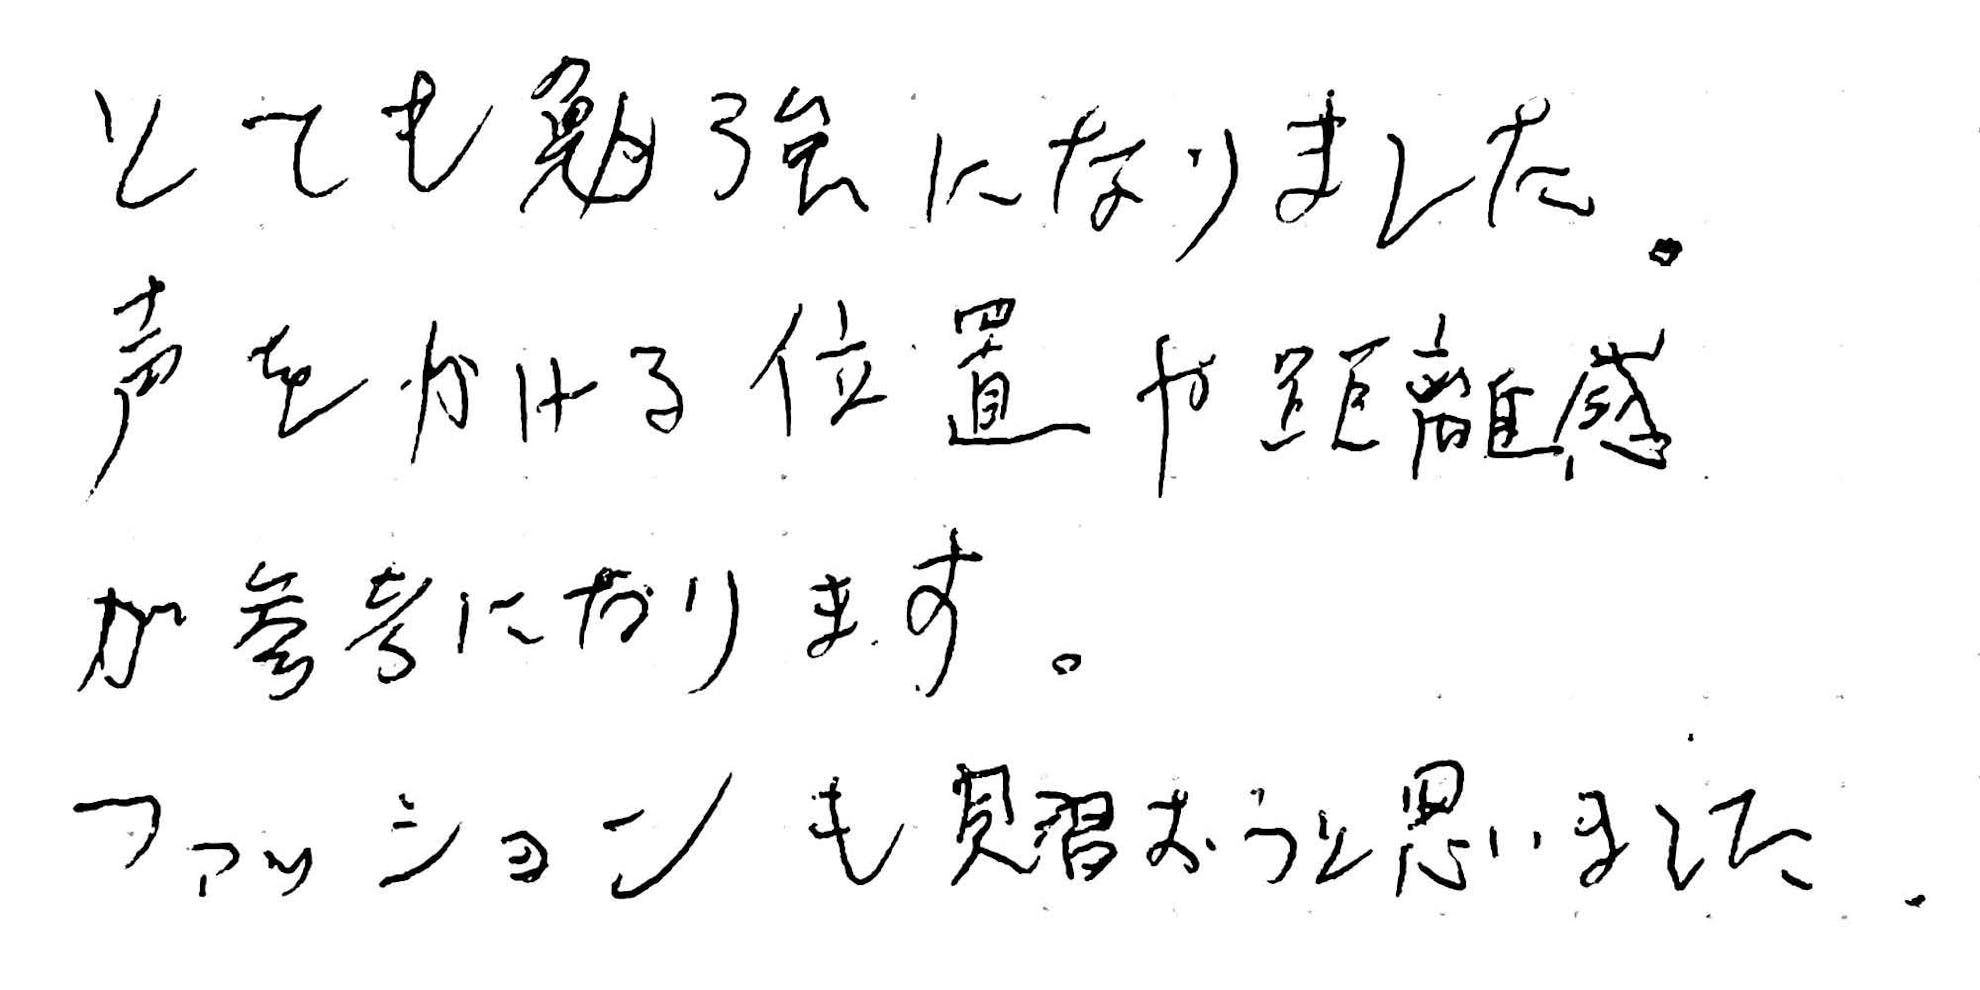 とても勉強になりました。
声をかける位置や距離感
が参考になります。
ファッションも見習おうと思いました.